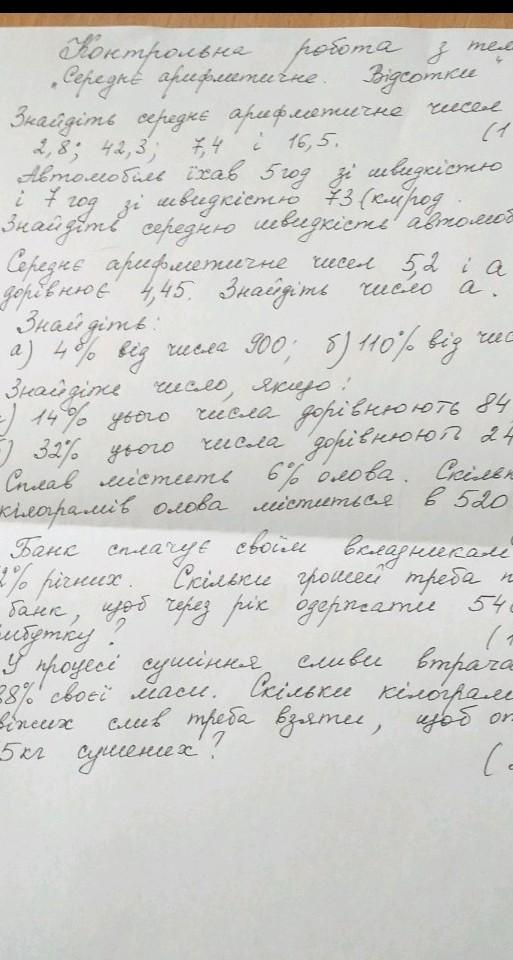 Контрольна робота з тем
"Середнє арифметичне. Відсотки"
Знайдіть середнє арифметичне чисел
2,8; 42,3; 7,4 і 16,5. (1
Автомобіль їхав 5 год зі швидкістю
і 7 год зі швидкістю 73 (км/год.
Знайдіть середню швидкість автомоб
Середнє арифметичне чисел 5,2 і а
дорівнює 4,45. Знайдіть число а.
Знайдіть:
а) 4% від числа 900; б) 110% від чис
Знайдіть число, якщо:
) 14% цього числа дорівнюють 84
) 32% цього числа дорівнюють 24
Сплав містить 6% олова. Скільк
кілограмів олова міститься в 520
Банк сплачує своїм вкладникам
2% річних. Скільки грошей треба п
банк, щоб через рік одержати 54
рибутку? (1
У процесі сушіння сливи втрача
88% своєї маси. Скільки кілограмі
віжих слив треба взяти, щоб от
5кг сушених? (